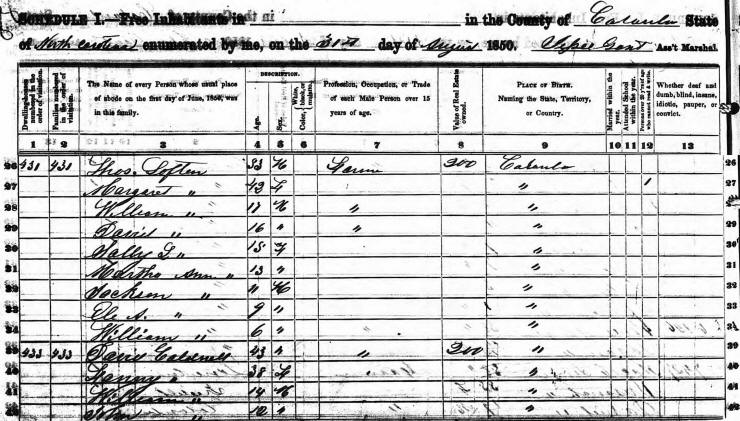 SCHEDULE I.—Free Inhabitants in in the County of Catawba State
of North Carolina enumerated by me, on the 31st day of August 1850. Ass't Marshal.
Dwelling-houses numbered in the order of visitation.
Families numbered in the order of visitation.
The Name of every Person whose usual place of abode on the first day of June, 1850, was in this family.
DESCRIPTION.
Age.
Sex.
Color, White, black, or mulatto.
Profession, Occupation, or Trade of each Male Person over 15 years of age.
Value of Real Estate owned.
PLACE OF BIRTH. Naming the State, Territory, or Country.
Married within the year.
Attended School within the year.
Persons over 20 y'rs of age who cannot read & write.
Whether deaf and dumb, blind, insane, idiotic, pauper, or convict.
1 2 3 4 5 6 7 8 9 10 11 12 13
26 431 431 Thos. Soften 53 M 300 Catawba 26
27 Margaret " 43 F " 1 27
28 William " 17 M " " 28
29 David " 16 " " " 29
30 Sally L. " 15 F " 30
31 Martha Ann " 13 " " 31
32 Jackson " 11 M " 32
33 " 9 " " 33
34 William " 6 " " 34
39 433 433 David Caldwell 43 " " 300 " 39
40 " 38 F " 40
41 William " 14 M " 41
42 John " 12 " " 42